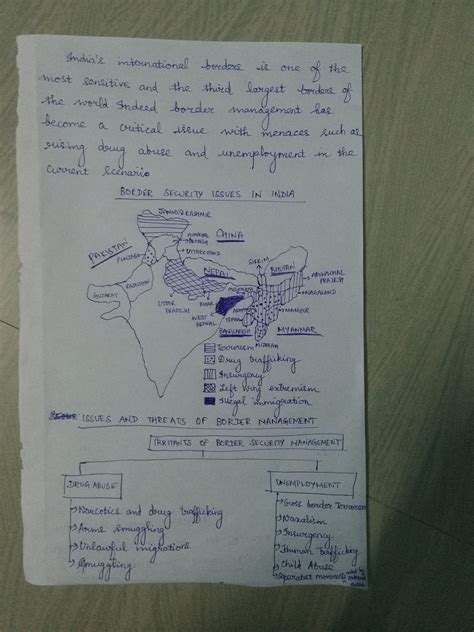 India's international borders is one of the
most sensitive and the third largest borders of
the world Indeed border management has
become a critical issue with menaces such as
rising drug abuse and unemployment in the
current scenario
BORDER SECURITY ISSUES IN INDIA
JAMMU & KASHMIR
HIMACHAL PRADESH
CHINA
PAKISTAN
PUNJAB
UTTARAKHAND
NEPAL
SIKKIM
BHUTAN
ARUNACHAL PRADESH
RAJASTHAN
GUJARAT
UTTAR PRADESH
BIHAR
WEST BENGAL
NAGALAND
MANIPUR
BANGLADESH
MYANMAR
MIZORAM
Terrorism
Drug trafficking
Insurgency
Left wing extremism
Illegal immigration
ISSUES AND THREATS OF BORDER MANAGEMENT
IRRITANTS OF BORDER SECURITY MANAGEMENT
DRUG ABUSE
Narcotics and drug trafficking
Arms smuggling
Unlawful migrations
Smuggling
UNEMPLOYMENT
Cross border Terrorism
Naxalism
Insurgency
Human trafficking
Child Abuse
Separatist movements